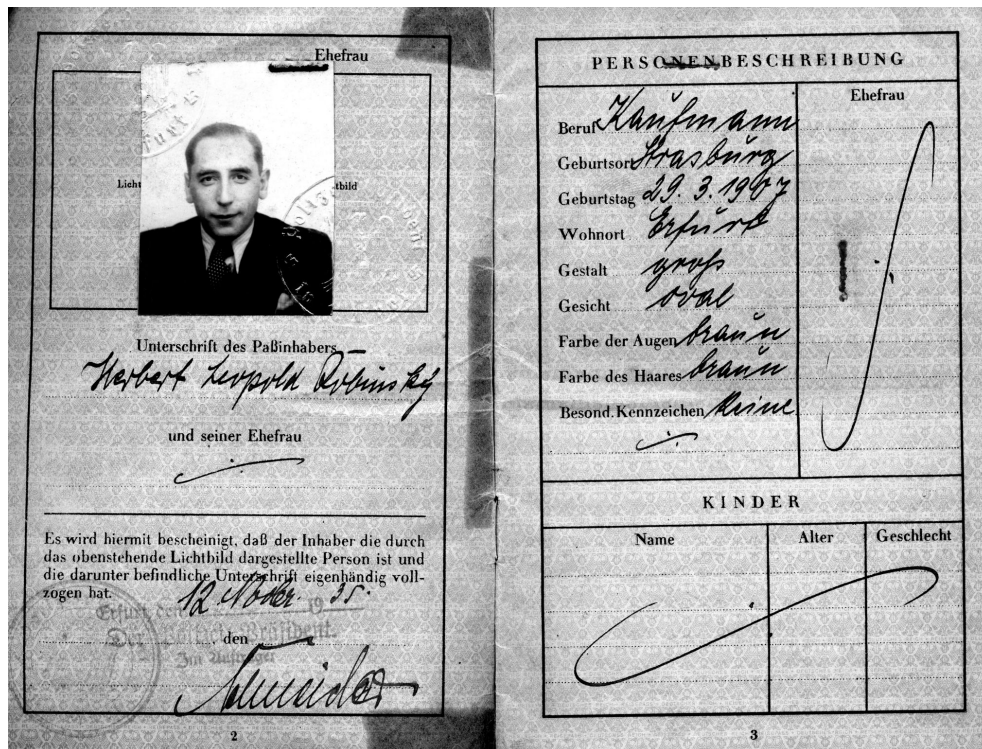 Ehefrau
Lichtbild
Unterschrift des Paßinhabers
Herbert Leopold Rōbinsky
und seiner Ehefrau
Es wird hiermit bescheinigt, daß der Inhaber die durch
das obenstehende Lichtbild dargestellte Person ist und
die darunter befindliche Unterschrift eigenhändig voll-
zogen hat.
12. Nov. 1935.
Erfurt den
Der Präsident.
den
Im Auftrage
Schneider
2
PERSONENBESCHREIBUNG
Ehefrau
Beruf Kaufmann
Geburtsort Strasburg
Geburtstag 29. 3. 1907
Wohnort Erfurt
Gestalt groß
Gesicht oval
Farbe der Augen braun
Farbe des Haares braun
Besond. Kennzeichen Keine
KINDER
Name Alter Geschlecht
3